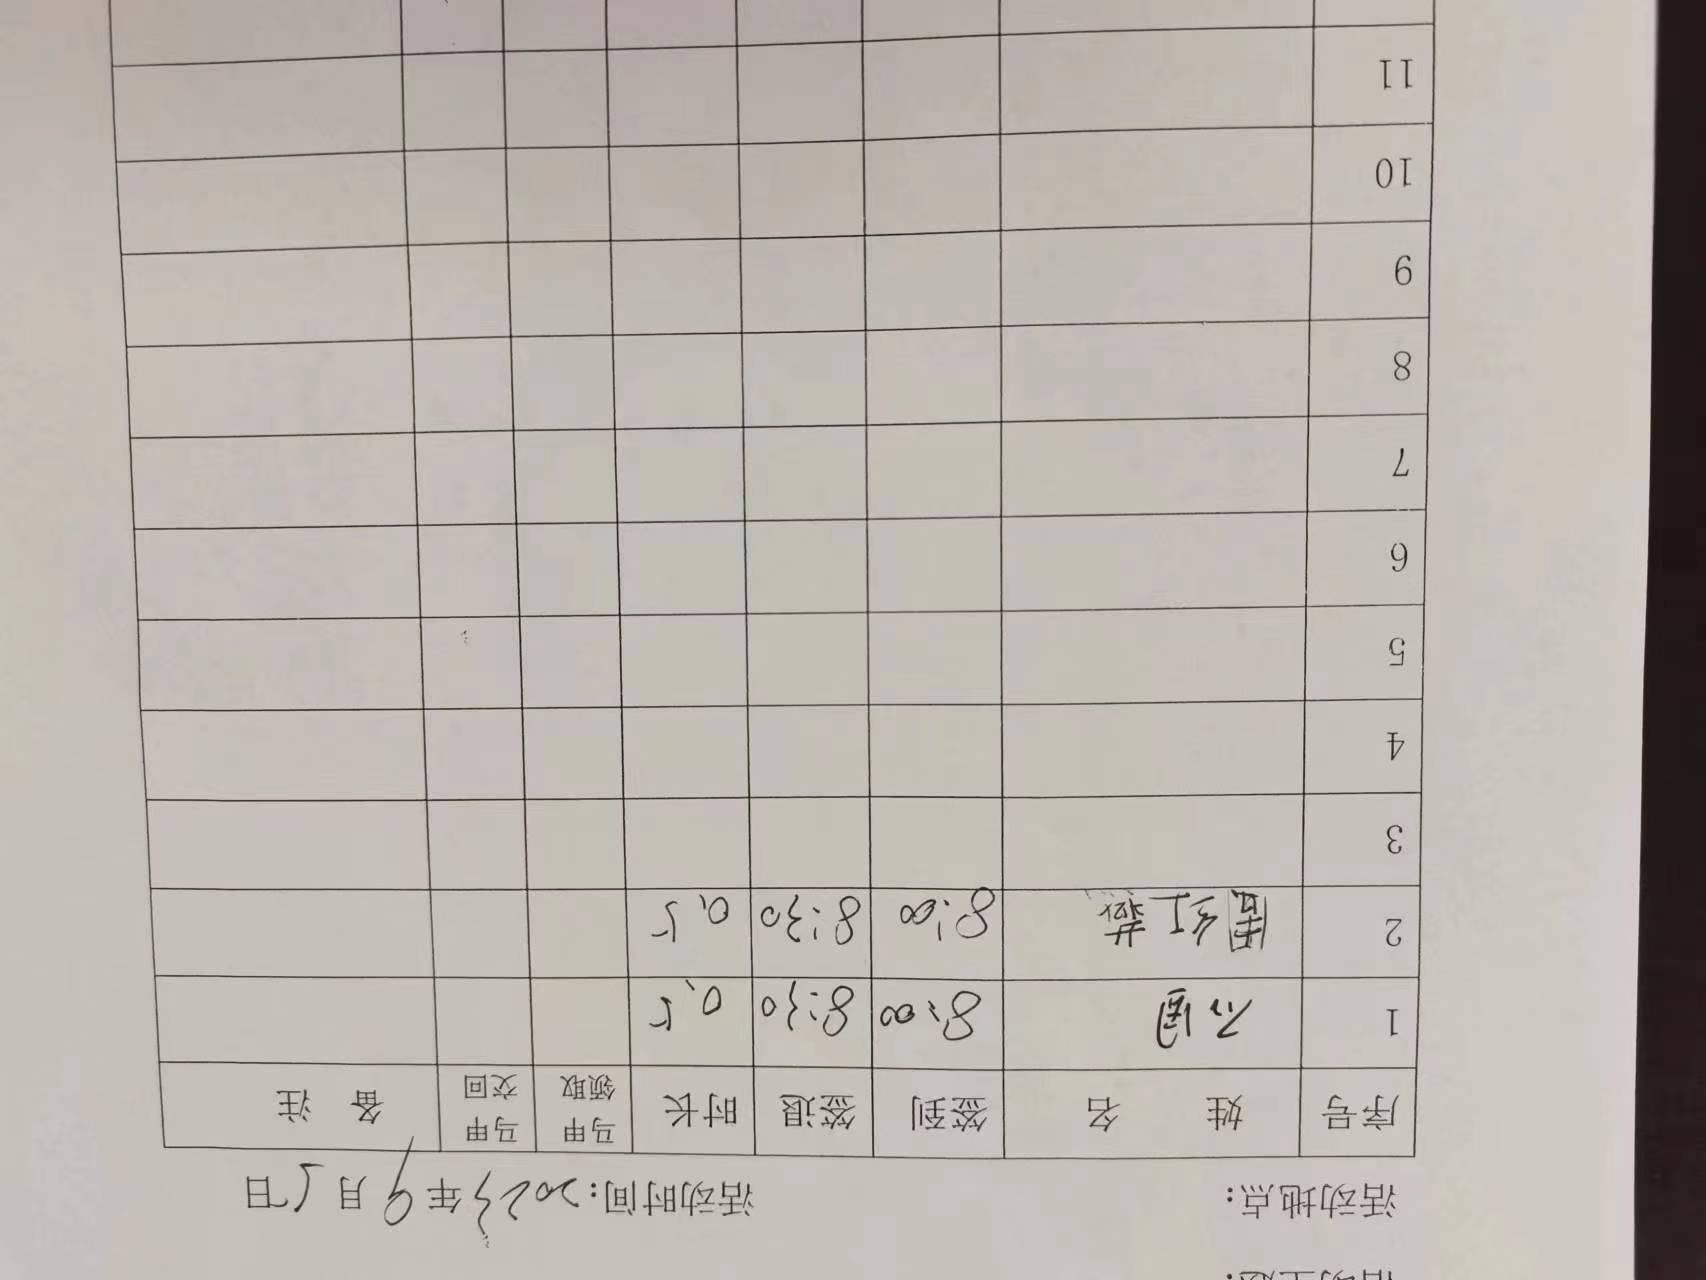 活动主题：
活动地点： 活动时间：2023年9月5日
序号 姓 名 签到 签退 时长 马甲领取 马甲交回 备 注
1 8:00 8:30 0.5
2 周红燕 8:00 8:30 0.5
3
4
5
6
7
8
9
10
11